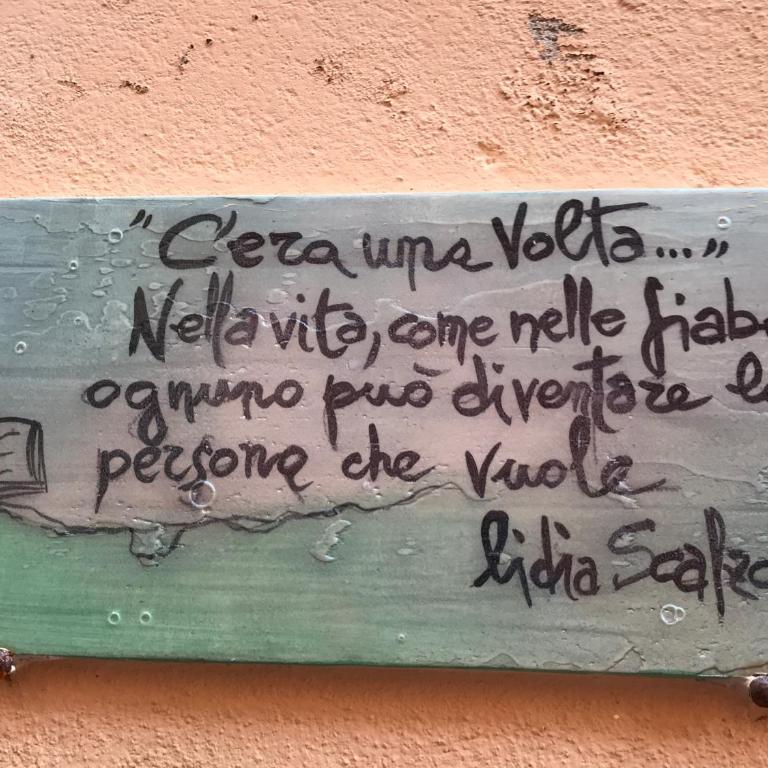 "C'era una Volta..."
Nella vita, come nelle fiab
ognuno può diventare l
persona che vuole
lidia Scalzo